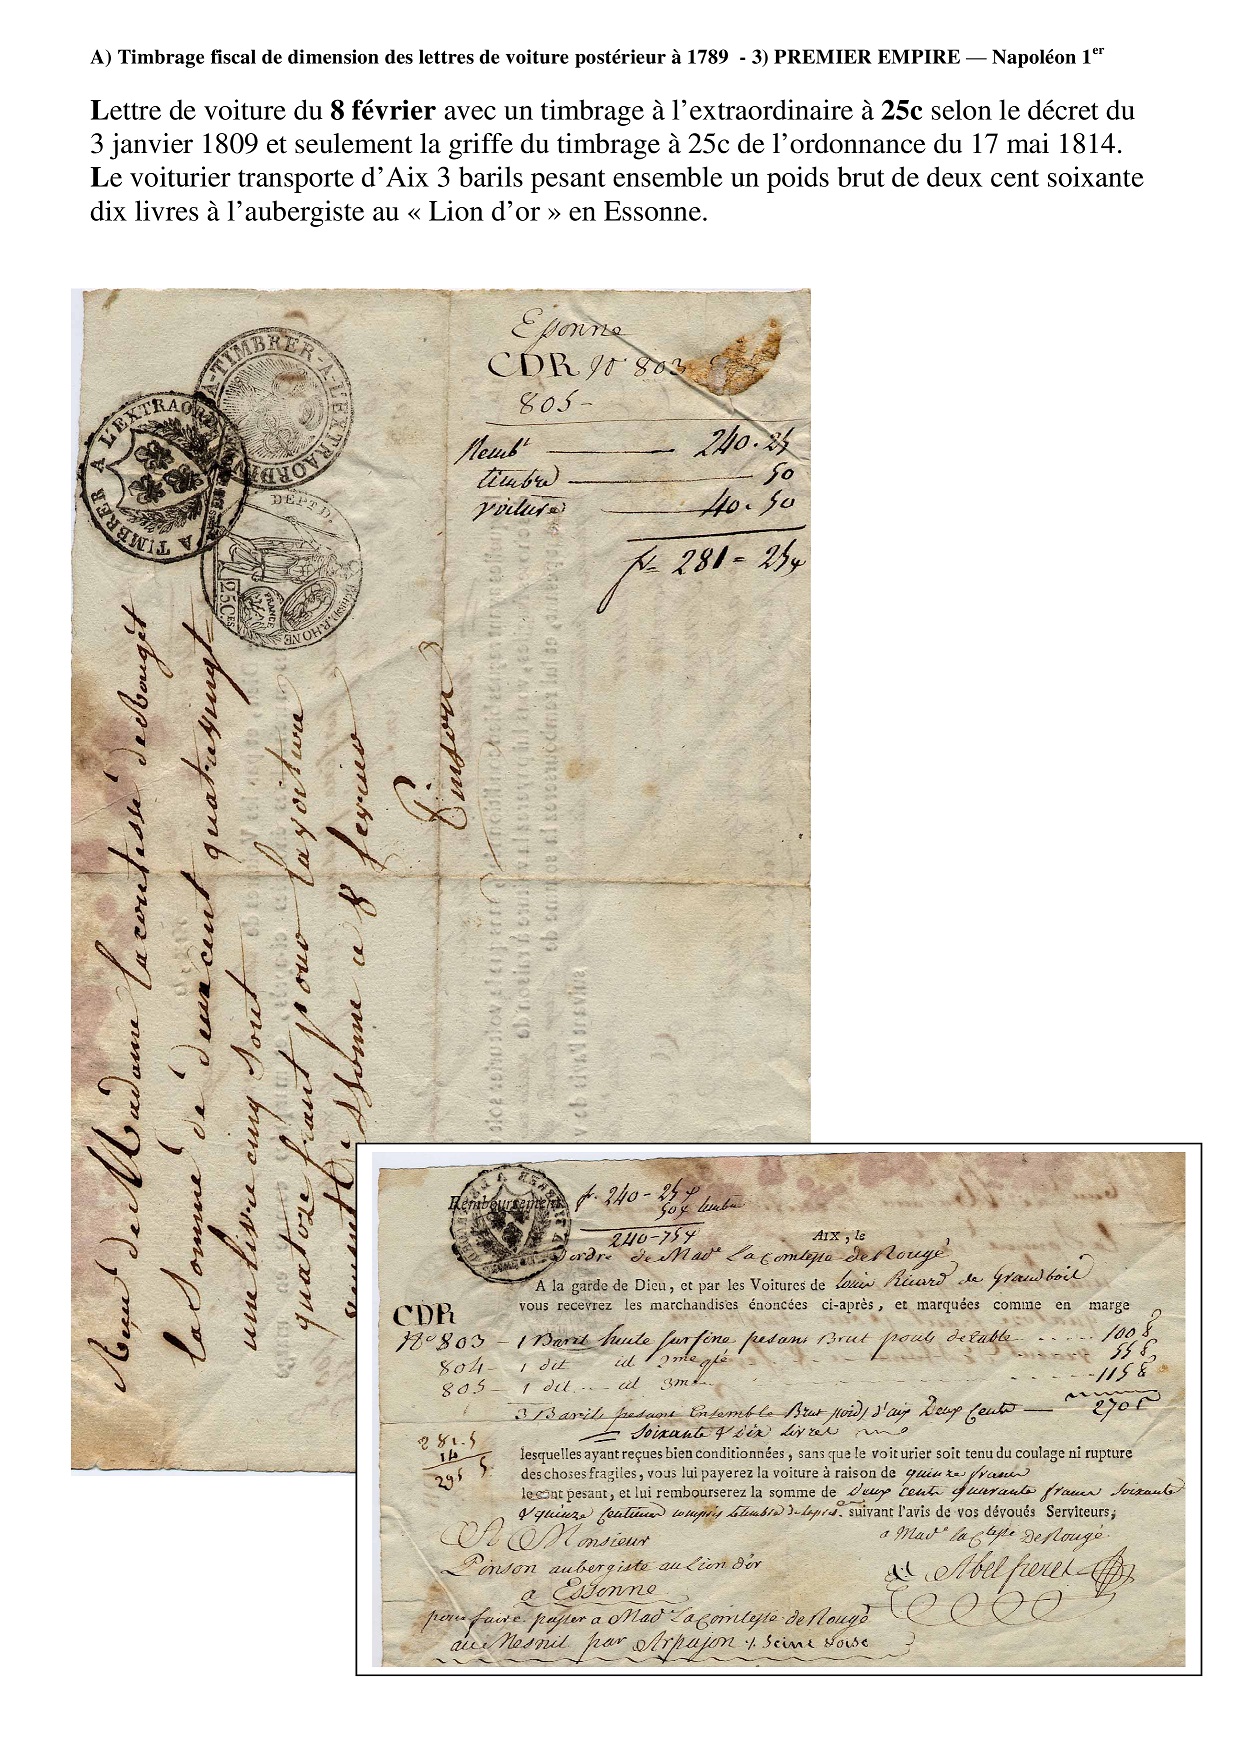 A) Timbrage fiscal de dimension des lettres de voiture postérieur à 1789 - 3) PREMIER EMPIRE — Napoléon 1er
Lettre de voiture du 8 février avec un timbrage à l’extraordinaire à 25c selon le décret du
3 janvier 1809 et seulement la griffe du timbrage à 25c de l’ordonnance du 17 mai 1814.
Le voiturier transporte d’Aix 3 barils pesant ensemble un poids brut de deux cent soixante
dix livres à l’aubergiste au « Lion d’or » en Essonne.
Essonne
CDR No 803
805 -
Remb.t 240.25
timbre 50
voiture 40.50
fr 281 = 25
A-TIMBRER-A-L'EXTRAORDIN
A TIMBRER A L'EXTRAORD
DEPT D.
25CES
FRANCE
RHONE
de Madame la contesse de Rougêt
la Somme de deux cent quatrevingt
une livre cinq sout
quatoze frant pour la voiture
Essonne ce 8 fevrier
Pinson
Remboursement fr. 240 - 25
50 timbre
240 - 75
AIX, le
d'ordre de Made La Comtesse de Rougé
A la garde de Dieu, et par les Voitures de Louis Ricard de Grandboil
vous recevrez les marchandises énoncées ci-après, et marquées comme en marge
CDR
No 803 - 1 Baril huile surfine pesant Brut poids de table 100
804 - 1 dit id 2me 55
805 - 1 dit id 3me 115
3 Barils pesant Ensemble Brut poids d'aix Deux Cents 270
Soixante & dix livres
281.5
14
295 5
lesquelles ayant reçues bien conditionnées, sans que le voiturier soit tenu du coulage ni rupture
des choses fragiles, vous lui payerez la voiture à raison de quinze francs
le cent pesant, et lui rembourserez la somme de deux cents quarante francs soixante
& quinze Centimes compris le timbre suivant l'avis de vos dévoués Serviteurs,
A Monsieur
a Made la Ctesse de Rougé
Pinson aubergiste au Lion d'or
Abel
a Essonne
pour faire passer a Made La Comtesse de Rougé
au Mesnil par Arpajon Seine & oise